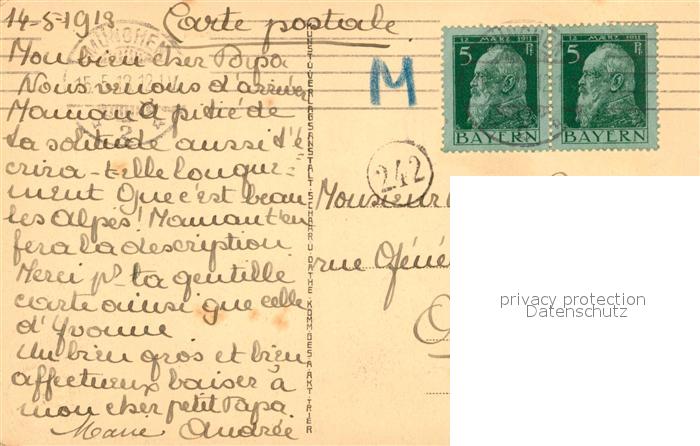 14-5-1913
Carte postale
Mon bien cher Papa
Nous venons d'arriver
Maman a pitié de
ta solitude aussi t'é
crira-t-elle longue-
ment Que c'est beau
les Alpes! Maman t'en
fera la description
Merci pr ta gentille
carte ainsi que celle
d'Yvonne
Un bien gros et bien
affectueux baiser à
mon cher petit Papa
Andrée
KUNSTVERLAGSANSTALT SCHAAR U. DATHE. KOMM.GES.A.AKT. TRIER
M
242
12 MÄRZ 1911
5 Pf
BAYERN
12 MÄRZ 1911
5 Pf
BAYERN
Monsieur
rue
privacy protection
Datenschutz